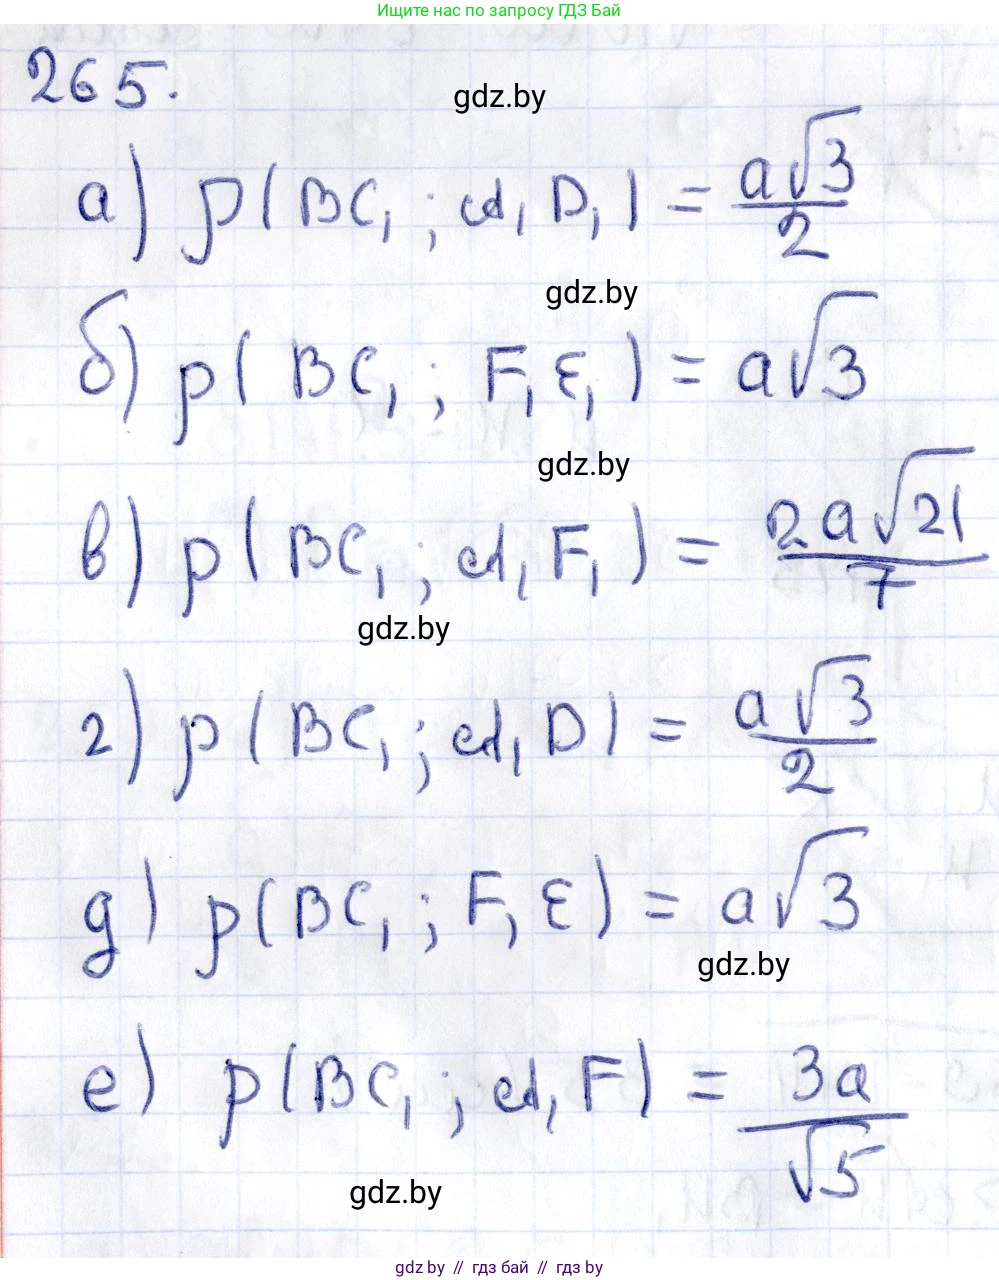 Ищите нас по запросу ГДЗ Бай
265.
gdz.by
а) p(BC₁; A₁D₁) = a√3/2
gdz.by
б) p(BC₁; F₁E₁) = a√3
gdz.by
в) p(BC₁; A₁F₁) = 2a√21/7
gdz.by
г) p(BC₁; A₁D) = a√3/2
д) p(BC₁; F₁E) = a√3
gdz.by
е) p(BC₁; A₁F) = 3a/√5
gdz.by
gdz.by // гдз бай // гдз by